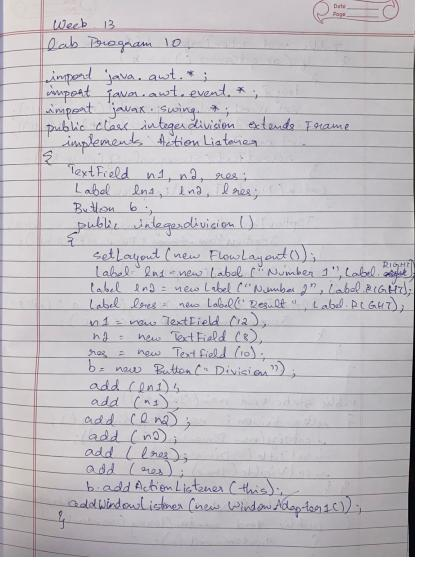 Date
Page
Week 13
Lab Program 10
import java.awt.*;
import java.awt.event.*;
import javax.swing.*;
public class integerdivision extends Frame
implements ActionListener
{
TextField n1, n2, res;
Label ln1, ln2, lres;
Button b;
public integerdivision()
{
setLayout (new FlowLayout());
Label ln1 = new Label ("Number 1", Label.RIGHT);
Label ln2 = new Label ("Number 2", Label.RIGHT);
Label lres = new Label("Result", Label.RIGHT);
n1 = new TextField (12);
n2 = new TextField (8);
res = new TextField (10);
b = new Button("Division");
add (ln1);
add (n1);
add (ln2);
add (n2);
add (lres);
add (res);
b.addActionListener (this);
addWindowListner (new WindowAdapter1());
}